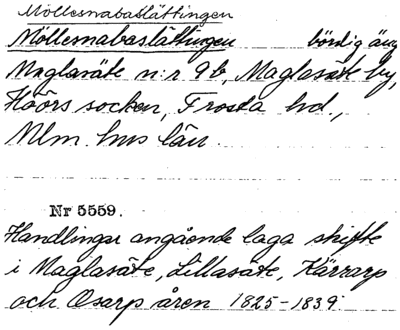 Möllesnabaslättingen
Möllesnabaslättingen bördig äng
Maglasäte n:r 9b, Maglasäte by,
Höörs socken, Frosta hd.,
Mlm. hus län.
Nr 5559.
Handlingar angående laga skifte
i Maglasäte, Lillasäte, Kärrarp
och Osarp åren 1825-1839.